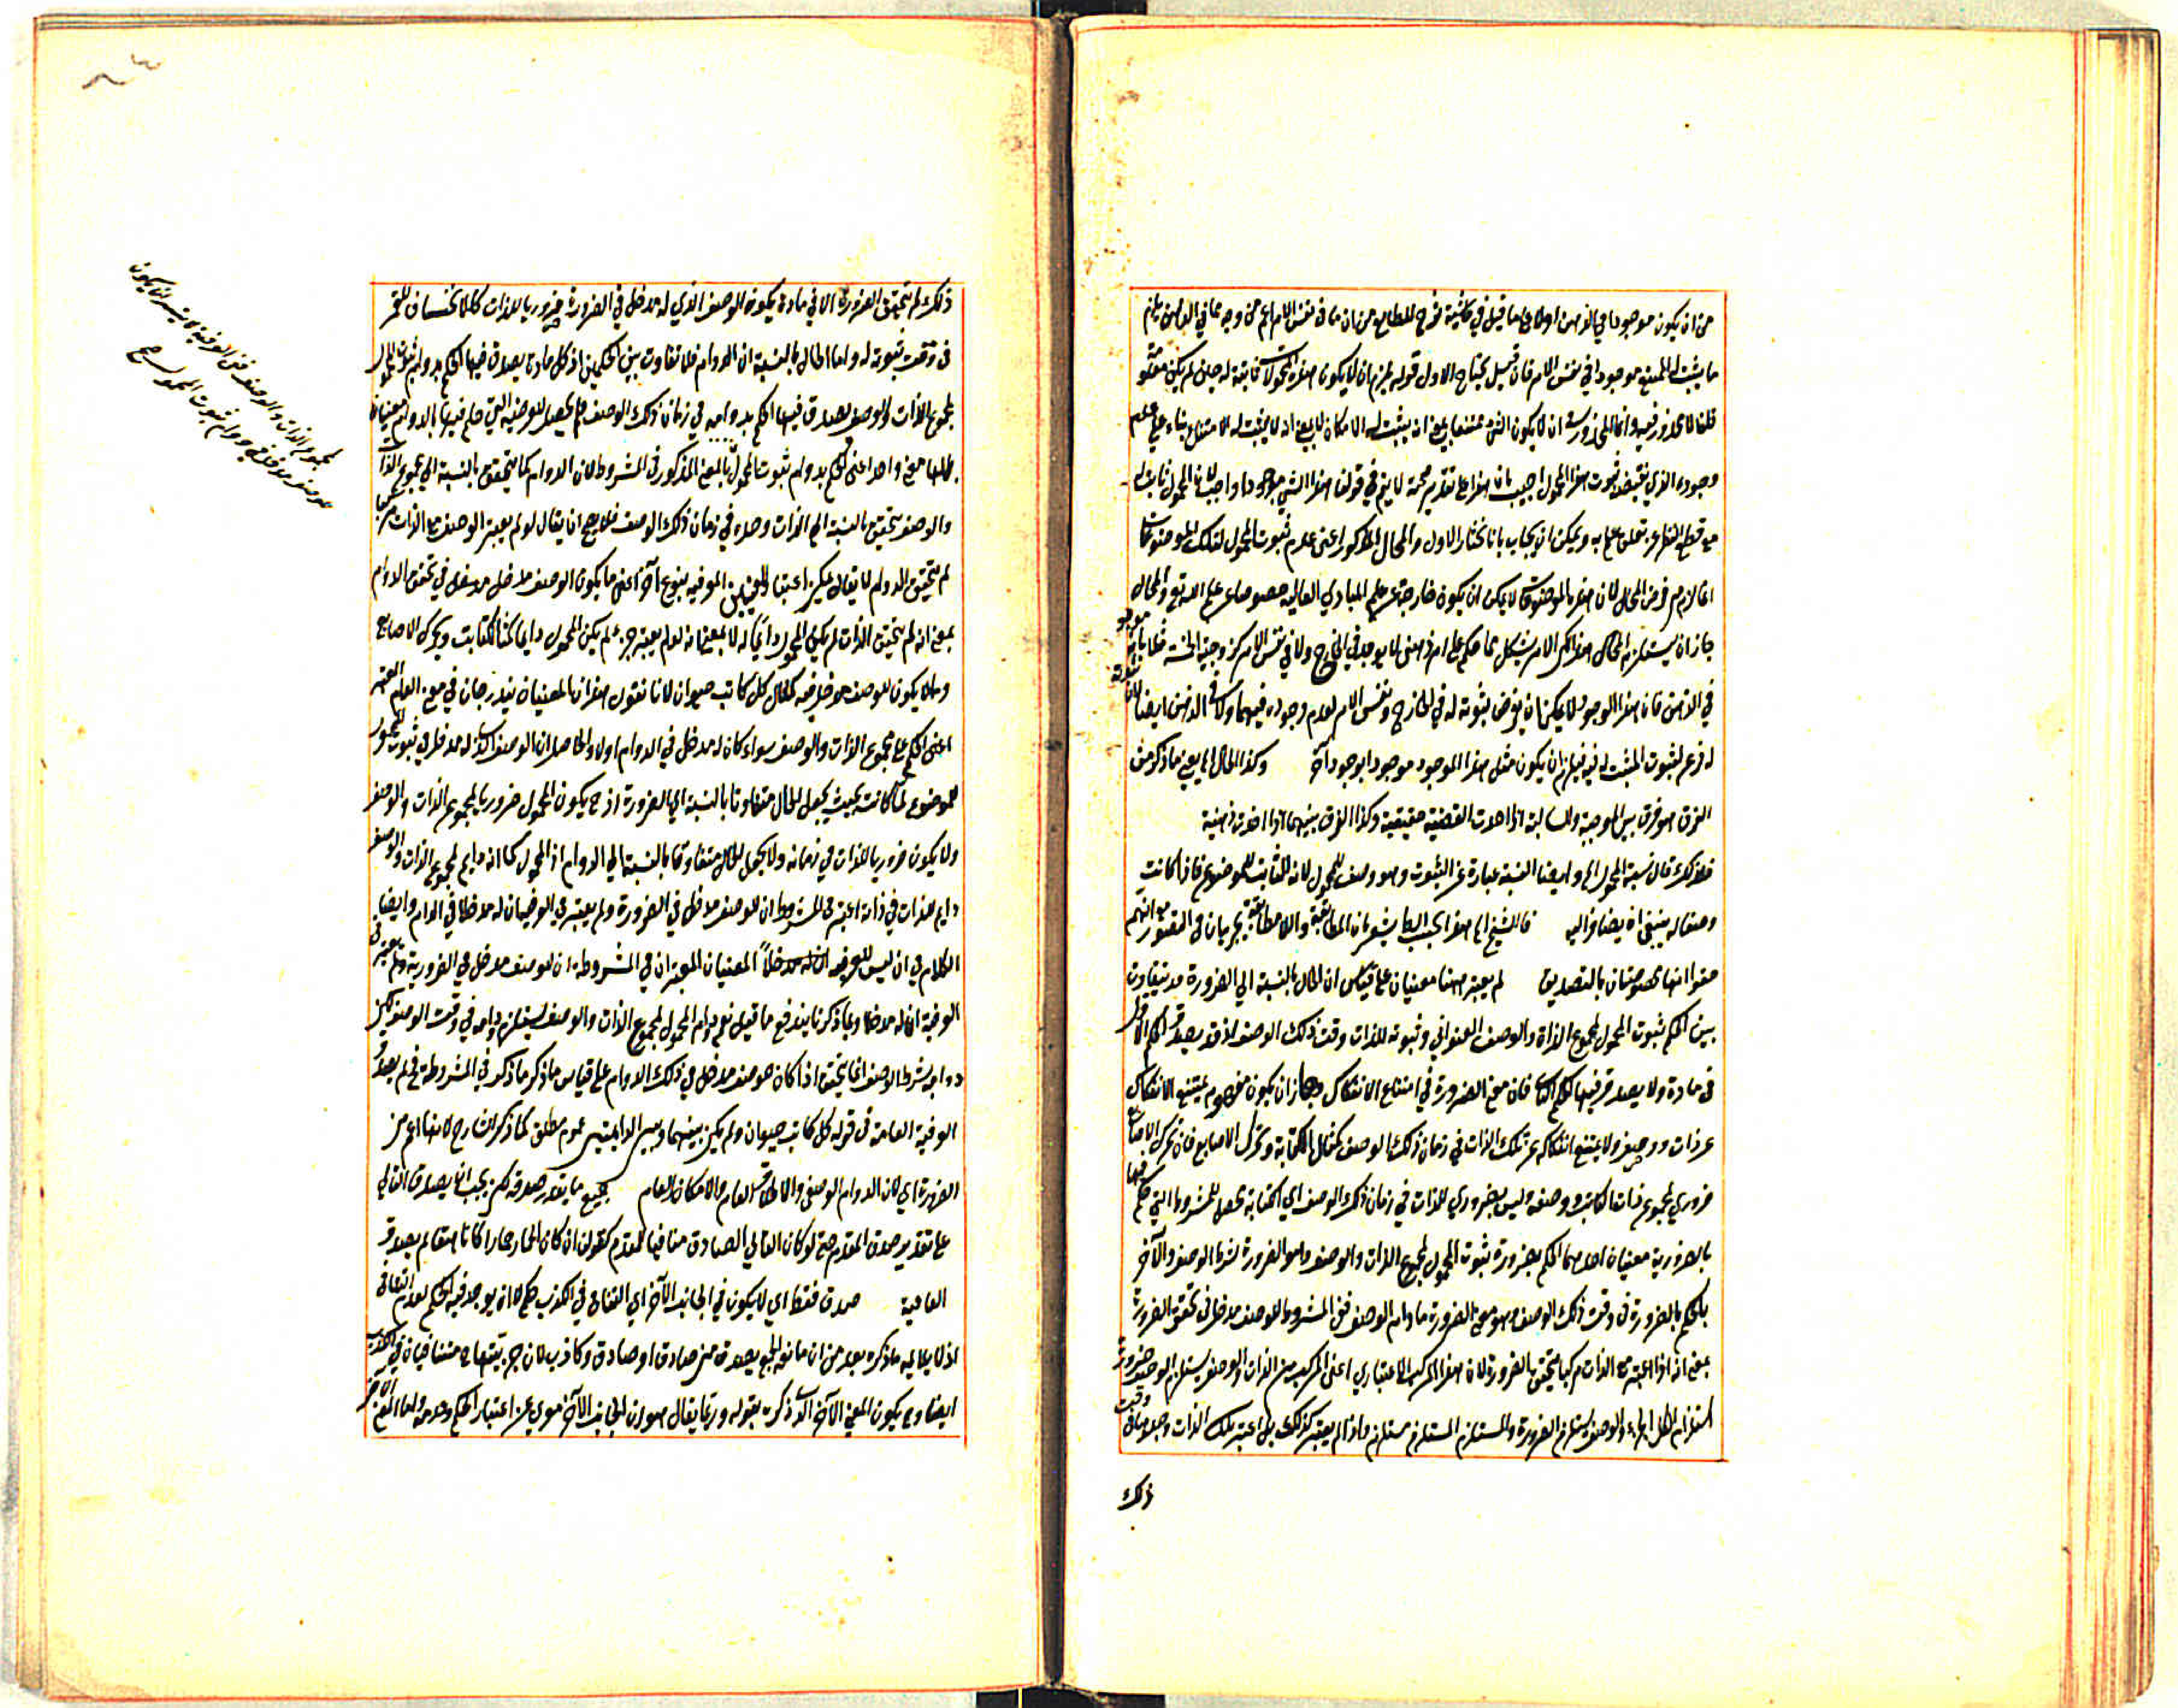 من ان يكون موجودا في الذهن اولا وعلى ما قيل في حاشية شرح المطالع من ان ما في نفس الامر اعم من وجه مما في الذهن يلزم
ما يثبت له الممتنع موجودا في نفس الامر فان قيل يحتاج الاول قوله يلزم ان لا يكون هذه المحمولات ثابتة له حين لم يكن
قلنا لا محذور فيه وانما المحذور ان لا يكون الشيء ممتنعا بمعنى انه يثبت له الامكان لا بمعنى انه لا يثبت له الامتناع بناء على عدم
وجوده الذي يقتضيه ثبوت هذا المحمول اجيب بان هذا على تقدير صحته لا يتم في قولنا هذا الشيء موجود واجب لان المحمول ثابت له
مع قطع النظر عن تعلق علم به ويمكن ان يجاب بانا نختار الاول والمحال المذكور اعني عدم ثبوت المحمول لتلك الموضوعات
انما لزم من فرض المحال لان هذه الموضوعات لا يمكن ان يكون خارجة عن علم المبادي العالية خصوصا عن علم الله تع والمحال
جاز ان يستلزم المحال هذا لكن الامر يشكل بما حكم على امر ذهني لا يوجد في الخارج ولا في نفس الامر كزوجية الخمسة مثلا بانه موجود
في الذهن فان هذا الوجود لا يمكن ان يفرض ثبوته له في الخارج ونفس الامر لعدم وجوده فيهما ولا في الذهن ايضا لان
له فرع لثبوت المثبت له فيه فيلزم ان يكون مثل هذا الموجود موجودا بوجود آخر وكذا الحال الخ يعني ما ذكر من
الفرق هو فرق بين الموجبة والسالبة اذا اخذت القضية حقيقية وكذا الفرق بينهما اذا اخذت ذهنية
فلذلك قال نسبة المحمول الخ وايضا النسبة عبارة عن الثبوت وهو وصف للمحمول لانه الثابت للموضوع فاذا كانت
وصفا له ينبغي ان يضاف اليه قال الشيخ الخ هذا بحسب الظ يشعر بان المطابقة واللامطابقة يجريان في التصور مع انهم
صرحوا انهما مخصوصتان بالتصديق لم يعتبر ههنا معنيان على قياس ان الحال بالنسبة الى الضرورة قد يتفاوت
بين الحكم بثبوت المحمول لمجموع الذات والوصف العنواني وثبوته للذات وقت ذلك الوصف اذ قد يصدق الحكم الاول
في مادة ولا يصدق فيها الحكم الثاني فان معنى الضرورة في امتناع الانفكاك وجاز ان يكون مفهوم يمتنع الانفكاك
عن ذات ووصف ولا يمتنع انفكاكه عن تلك الذات في زمان ذلك الوصف كمثال الكتابة وتحرك الاصابع فان تحرك الاصابع
ضروري لمجموع ذات الكاتب ووصفه وليس بضروري للذات في زمان ذلك الوصف اي الكتابة تحصل للمشروطة التي حكم فيها
بالضرورية معنيان احدهما الحكم بضرورة ثبوت المحمول لمجموع الذات والوصف وهو الضرورة بشرط الوصف والآخر
الحكم بالضرورة في وقت ذلك الوصف وهو معنى الضرورة ما دام الوصف ففي المشروطة للوصف مدخل في تحقق الضرورة
بمعنى انه اذا اعتبر مع الذات مركبا يتحقق الضرورة لان هذا المركب الاعتباري اعني المركب من الذات والوصف يستلزم الوصف ضرورة
استلزام الكل الجزء والوصف يستلزم الضرورة والمستلزم المستلزم مستلزم واذا لم يعتبر كذلك بل اعتبر تلك الذات وحدها في وقت
ذلك
ذلك لم يتحقق الضرورة الا في مادة يكون الوصف الذي له مدخل في الضرورة ضروريا للذات كالانخساف للقمر
في وقت ثبوته له واما الحال بالنسبة الى الدوام فلا تفاوت بين الحكمين اذ كل مادة يصدق فيها الحكم بدوام ثبوت المحمول
لمجموع الذات والوصف يصدق فيها الحكم بدوامه في زمان ذلك الوصف فلم يحصل للعرفية التي حكم فيها بالدوام معنيان
بل لها معنى واحد اعني الحكم بدوام ثبوت المحمول بالمعنى المذكور في المشروطة لان الدوام كما يتحقق بالنسبة الى مجموع الذات
والوصف يتحقق بالنسبة الى الذات وحده في زمان ذلك الوصف فلا يصح ان يقال لو لم يعتبر الوصف مع الذات مركبا
لم يتحقق الدوام لا يقال يمكن اعتبار المعنيين في العرفية بنوع آخر اعني ما يكون الوصف مدخل مدخل في تحقق الدوام
بمعنى انه لم يتحقق الذات لم يكن المحمول دائما له لا بمعنى انه لو لم يعتبر جزء لم يكن المحمول دائما كذا الكتابة وتحرك الاصابع
وما لا يكون للوصف مدخل فيه كمثال كل كاتب حيوان لانا نقول هذان المعنيان يندرجان في معنى العام المعتبر
اعني الحكم على مجموع الذات والوصف سواء كان له مدخل في الدوام اولا والحاصل ان الوصف الذي له مدخل في ثبوت المحمول
للموضوع لما كانت بحيث يجعل الحال متفاوتا بالنسبة الى الضرورة اذ ح يكون المحمول ضروريا لمجموع الذات والوصف
ولا يكون ضروريا للذات في زمانه ولا يجعل الحال متفاوتا بالنسبة الى الدوام اذ المحمول كما انه دائم لمجموع الذات والوصف
دايم للذات في ذاته اعتبر في المشروطة ان للوصف مدخل في الضرورة ولم يعتبر في العرفية ان له مدخلا في الدوام وايضا
الكلام في ان ليس للعرفية ان له مدخلا المعنيان المعتبران في المشروطة ان للوصف مدخل في الضرورية ولم يعتبر في
العرفية ان له مدخلا وبما ذكرنا يندفع ما قيل نعم دوام المحمول لمجموع الذات والوصف يستلزم دوامه في وقت الوصف لكن
دوامه بشرط الوصف انما يتحقق اذا كان للوصف مدخل في ذلك الدوام على قياس ما ذكر ما ذكر في المشروطة فح لم يصدق
العرفية العامة في قوله كل كاتب حيوان ولم يكن بينهما وبين الدائمتين عموم مطلق كما ذكر الشارح لانها اعم من
الضرورة اي لان الدوام الوصفي والاطلاق العام والامكان العام بجميع ما يقدر صدقه لكن يجب ان يصدق التالي
على تقدير صدق المقدم حتى لو كان التالي الصادق منافيا للمقدم كقولنا ان كان الحمار حمارا كان ناهقا لم يصدق
العامية صدق فقط اي لا يكون في الجانب الآخر اي التنافي في الكذب حكم لا انه يوجد فيه الحكم بعدم التنافي
اذ لا يلايمه ما ذكره بعد من ان مانعة الجمع يصدق من صادق او صادق وكاذب لان جزئيتهما ح متنافيان في الكذب
ايضا وح يكون المعنى الآخر الذي ذكره بقوله وربما يقال هو ان الجانب الآخر معرى عن اعتبار الحكم وعدمه واما المعنى الآخر
لمجموع الذات والوصف ففي العرفية
للوصف مدخل في دوام ثبوت المحمول صح